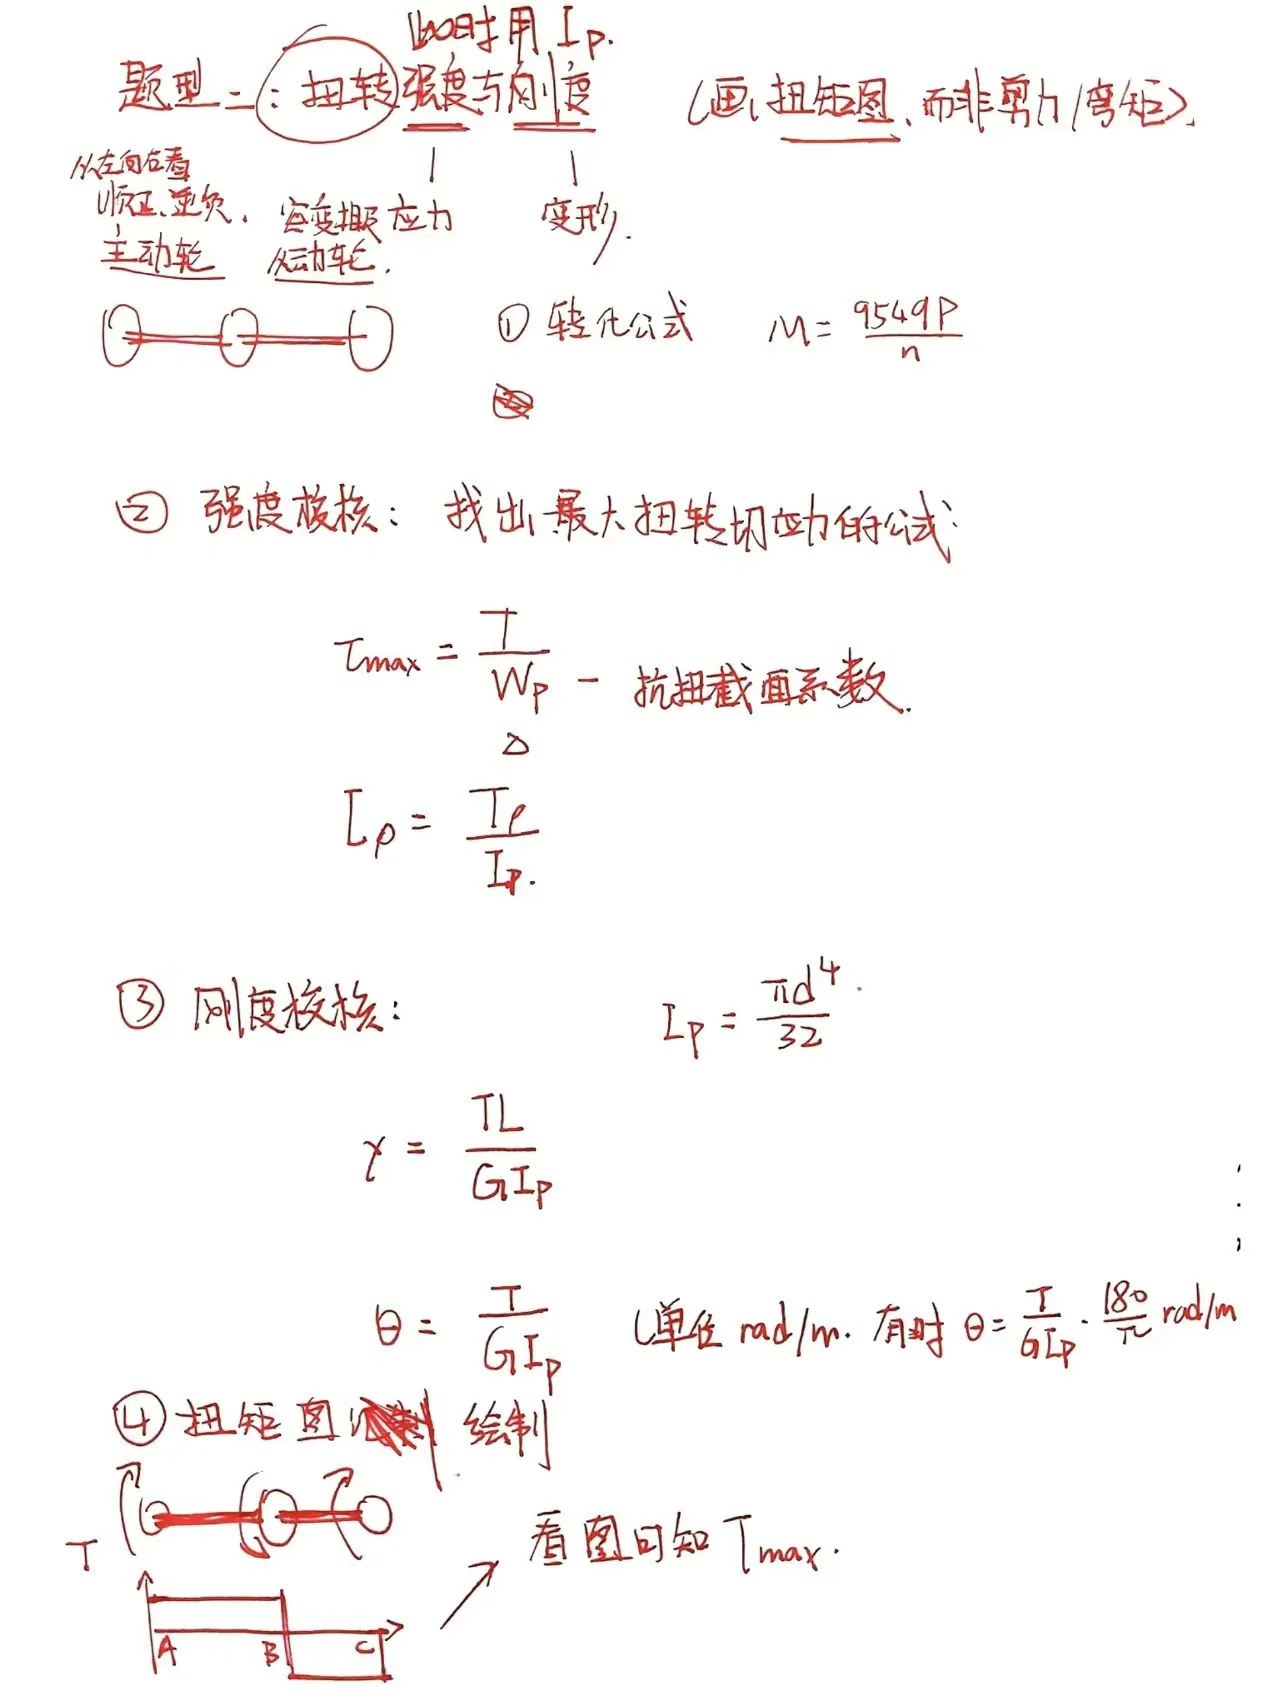 时用 Ip.
题型二:扭转强度与刚度 (画扭矩图、而非剪力/弯矩).
从左向右看
顺正、逆负. 应力 变形.
主动轮 从动轮.
① 转化公式 M = 9549P/n
② 强度校核: 找出最大扭转切应力的公式:
τmax = T/Wp - 抗扭截面系数.
Iρ = Tρ/Ip.
③ 刚度校核: Ip = πd⁴/32.
γ = TL/GIp
θ = T/GIp (单位 rad/m. 有时 θ = T/GIp · 180/π rad/m
④ 扭矩图 绘制
T
看图可知 Tmax.
A B C